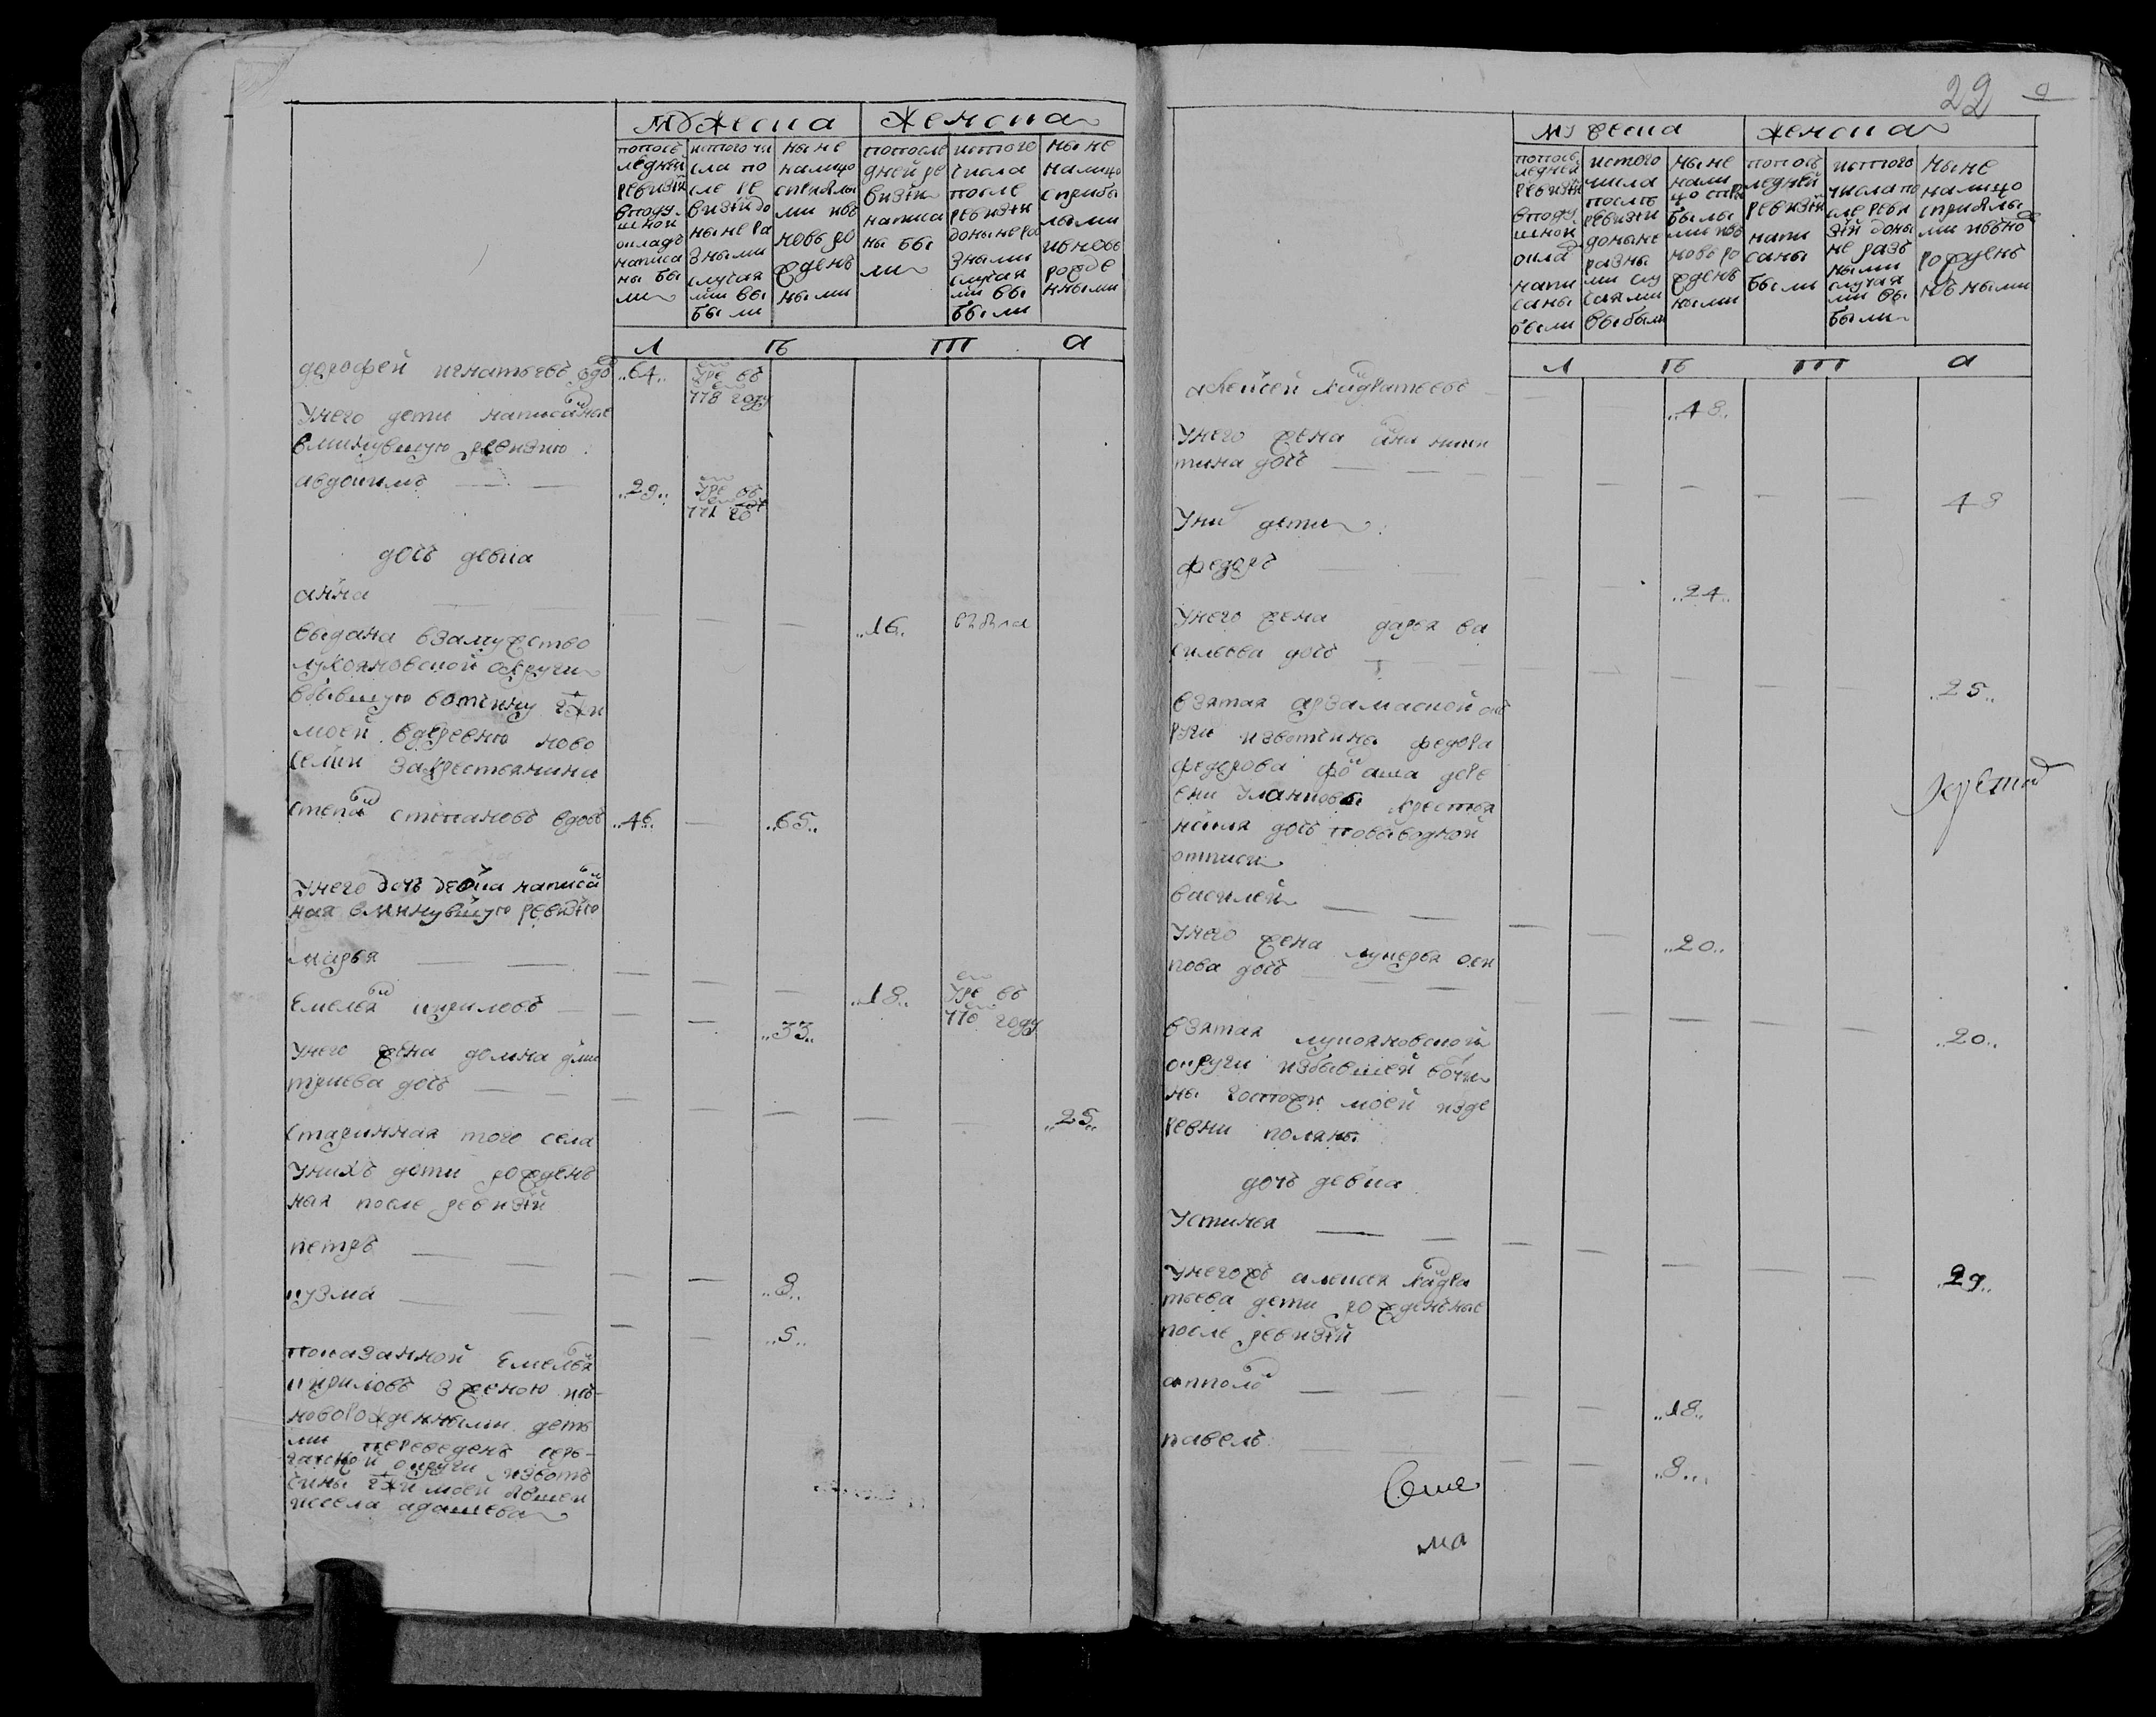 мужеска
женска
попосъ
ледней
ревизiи
вподу
шной
окладъ
написа
ны бы
ли
истого чи
сла по
сле ре
визiи до
ныне ра
зными
случая
ми вы
были
ныне
налицо
сприбылы
ми ивъ
новь ро
жденъ
ными
попосле
дней ре
визiи
написа
ны бы
ли
истого
числа
после
ревизiи
доныне ра
зными
случая
ми вы
были
ныне
налицо
сприбы
лыми
ивновь
рожде
нными
л ѣ т а
дорофей игнатьевъ вдовъ ..64.. умре въ
778 году
Унего дети написаныя
вминувшую ревизию
авдокимъ ..29.. умре въ
771 годе
дочь девка
анна
..16.. выбыла
выдана взамужество
лукояновской округи
вбывшую вотчину гжи
моей вдеревню ново
селки закрестьянина
степанъ степановъ вдовъ ..46.. ..65..
Унего дочь девка написан
ная вминувшую ревизiю
марья
..18.. умре въ
770 году
Емельян кириловъ
..33..
Унего жена домна дми
триева дочь
..25..
старинная того села
Унихъ дети рожденъ
ныя после ревизiй
петръ
..8..
кузма
..5..
показанной Емельян
кириловъ з женою исъ
новорожденными деть
ми переведенъ серъ
гачской округи извотъ
чины гжи моей
исела адашева
22
мужеска
женска
попосъ
ледней
ревизiи
вподу
шной
оклад
напи
саны
были
истого
числа
послѣ
ревизiи
доныне
разны
ми слу
чаями
выбыли
ныне
нали
цо спри
былы
ми ивъ
новь ро
жденъ
ными
попосъ
ледней
ревизiи
напи
саны
были
истого
числа по
сле реви
зiй доны
не разъ
ными
случая
ми вы
были
ныне
налицо
сприбылы
ми ивъно
рожденъ
ными
л ѣ т а
алексей кандратьевъ
..48..
Унего жена анна ники
тина дочь
48
Уних дети
федоръ
..24..
Унего жена дарья ва
сильева дочь
..25..
взятая арзамаской ок
руги извотчины федора
федорова дере
вни Улановы крестья
нина дочь повыводной
отписи
василей
..20..
Унего жена лукерья оси
пова дочь
..20..
взятая лукояновской
округи избывшей вотчи
ны госпожи моей изде
ревни поляны
дочь девка
Устинья
..29..
Унегожъ алексея кандра
тьева дети рожденные
после ревизiй
апполон
..18..
павелъ
..8..